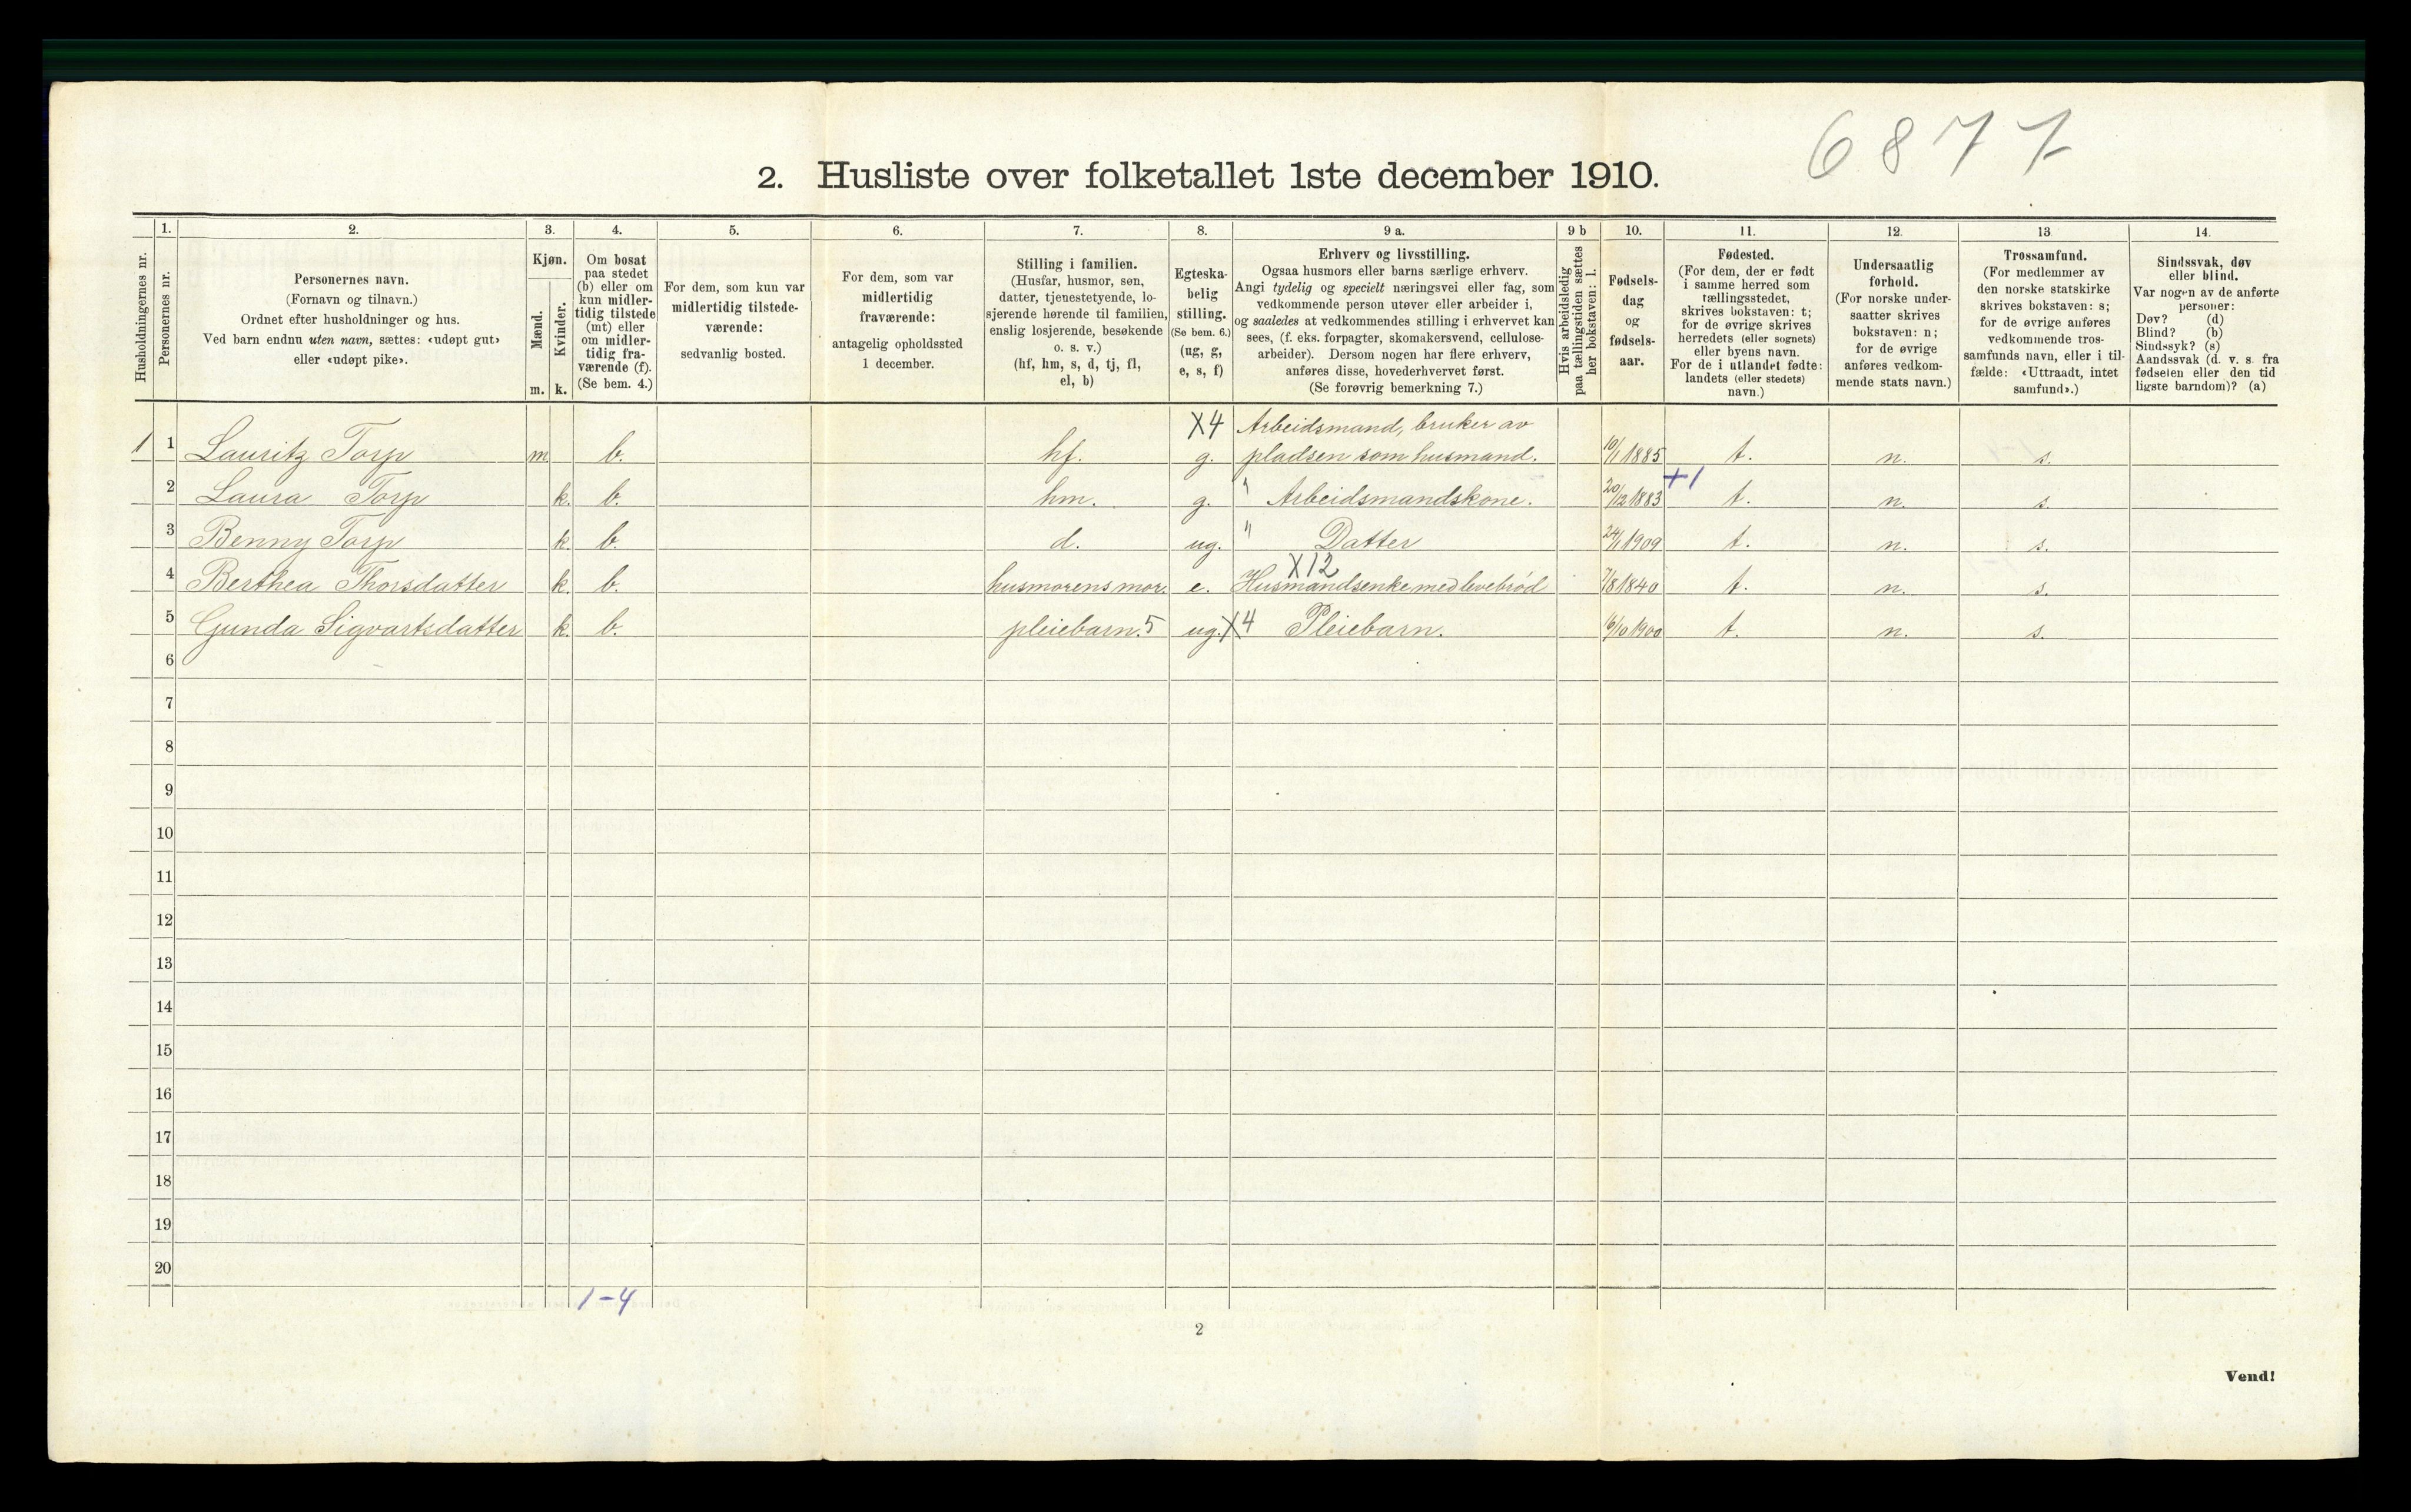 6877
2. Husliste over folketallet 1ste december 1910.
Husholdningernes nr.
1.
Personernes nr.
2.
Personernes navn.
(Fornavn og tilnavn.)
Ordnet efter husholdninger og hus.
Ved barn endnu uten navn, sættes: «udøpt gut»
eller «udøpt pike».
3.
Kjøn.
Mænd.
Kvinder.
m. k.
4.
Om bosat
paa stedet
(b) eller om
kun midler-
tidig tilstede
(mt) eller
om midler-
tidig fra-
værende (f).
(Se bem. 4.)
5.
For dem, som kun var
midlertidig tilstede-
værende:
sedvanlig bosted.
6.
For dem, som var
midlertidig
fraværende:
antagelig opholdssted
1 december.
7.
Stilling i familien.
(Husfar, husmor, søn,
datter, tjenestetyende, lo-
sjerende hørende til familien,
enslig losjerende, besøkende
o. s. v.)
(hf, hm, s, d, tj, fl,
el, b)
8.
Egteska-
belig
stilling.
(Se bem. 6.)
(ug, g,
e, s, f)
9 a.
Erhverv og livsstilling.
Ogsaa husmors eller barns særlige erhverv.
Angi tydelig og specielt næringsvei eller fag, som
vedkommende person utøver eller arbeider i,
og saaledes at vedkommendes stilling i erhvervet kan
sees, (f. eks. forpagter, skomakersvend, cellulose-
arbeider). Dersom nogen har flere erhverv,
anføres disse, hovederhvervet først.
(Se forøvrig bemerkning 7.)
9 b
Hvis arbeidsledig
paa tællingstiden sættes
her bokstaven: l.
10.
Fødsels-
dag
og
fødsels-
aar.
11.
Fødested.
(For dem, der er født
i samme herred som
tællingsstedet,
skrives bokstaven: t;
for de øvrige skrives
herredets (eller sognets)
eller byens navn.
For de i utlandet fødte:
landets (eller stedets)
navn.)
12.
Undersaatlig
forhold.
(For norske under-
saatter skrives
bokstaven: n;
for de øvrige
anføres vedkom-
mende stats navn.)
13
Trossamfund.
(For medlemmer av
den norske statskirke
skrives bokstaven: s;
for de øvrige anføres
vedkommende tros-
samfunds navn, eller i til-
fælde: «Uttraadt, intet
samfund».)
14.
Sindssvak, døv
eller blind.
Var nogen av de anførte
personer:
Døv? (d)
Blind? (b)
Sindssyk? (s)
Aandssvak (d. v. s. fra
fødselen eller den tid
ligste barndom)? (a)
X4 Arbeidsmand, bruker av
1 1 Lauritz Torp m b. hf. g. pladsen som husmand. 10/1 1885 t. n. s.
+1
2 Laura Torp k. b. hm. g. " Arbeidsmandskone. 20/12 1883 t. n. s.
3 Benny Torp k. b. d. ug. " Datter 24/1 1909 t. n. s.
X12
4 Berthea Thorsdatter k. b. husmorens mor. e. Husmandsenke med levebrød 7/8 1840 t. n. s.
5 Gunda Sigvartsdatter k. b. pleiebarn. 5 ug. X4 Pleiebarn. 6/10 1900 t. n. s.
6
7
8
9
10
11
12
13
14
15
16
17
18
19
20
1-4
2
Vend!